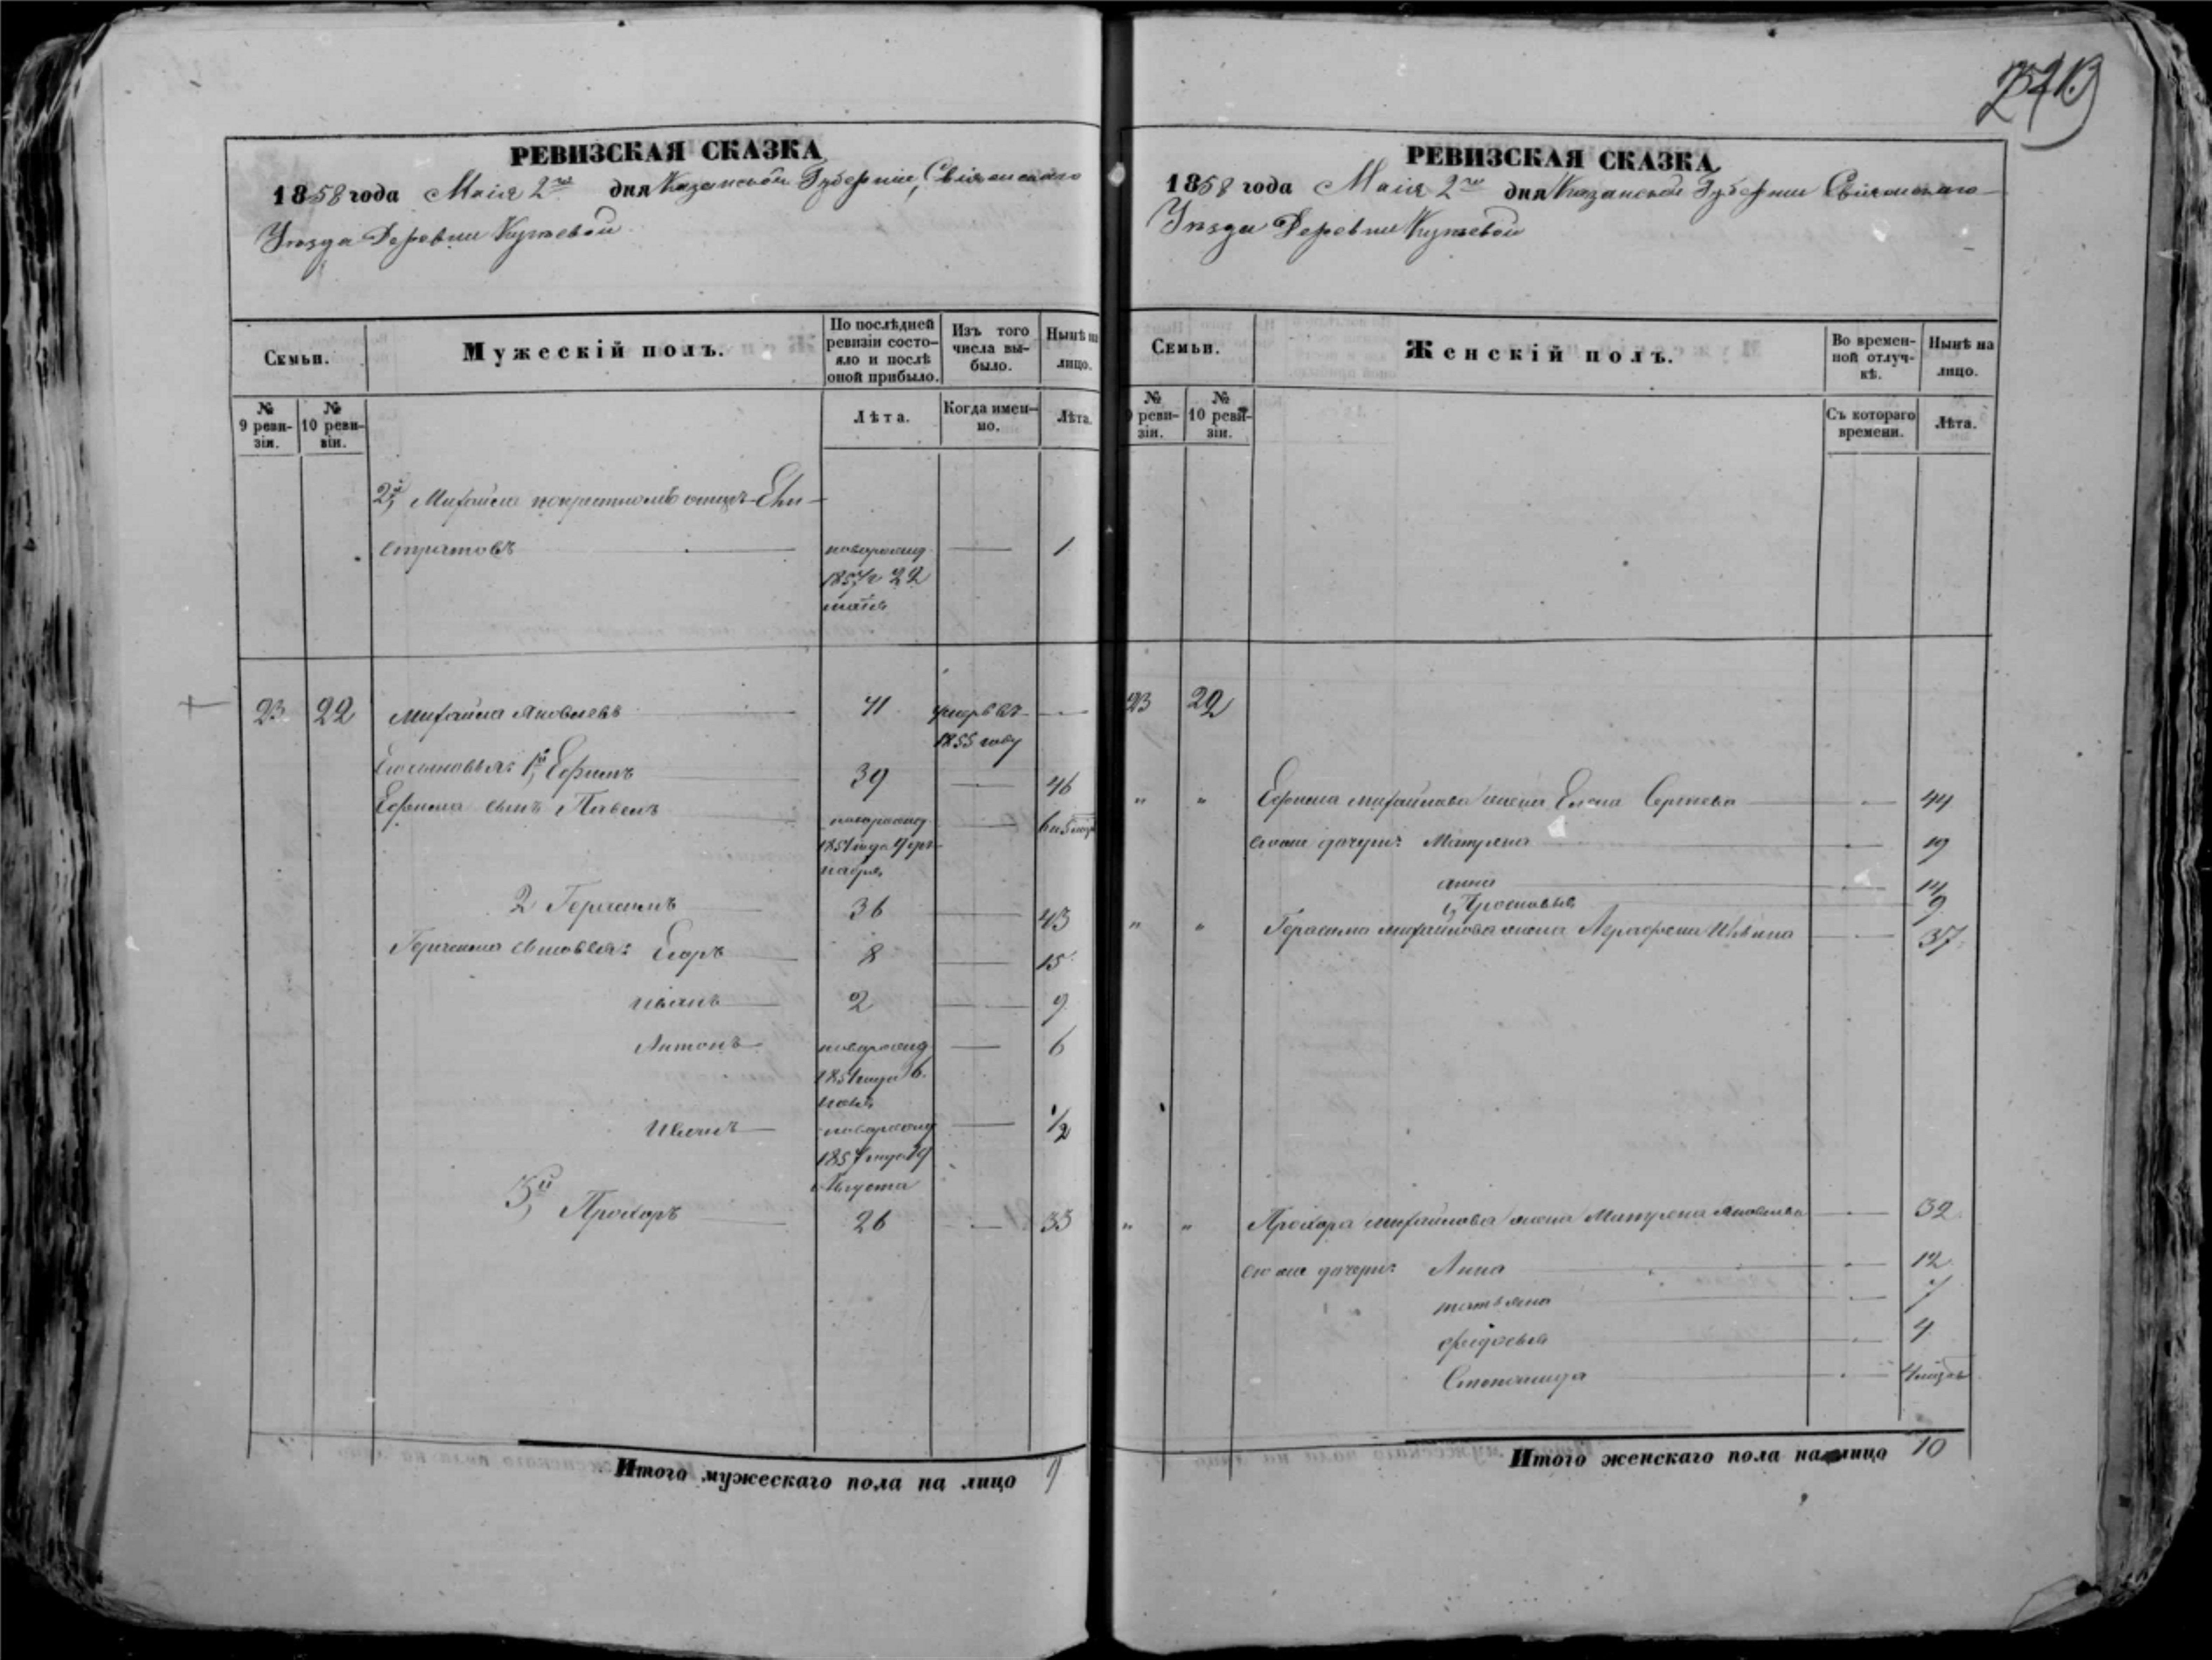 РЕВИЗСКАЯ СКАЗКА
1858 года Маія 2го дня Казанской Губерніи, Свіяжскаго
Уѣзда Деревни
Семьи.
Мужескій полъ.
По послѣдней ревизіи состояло и послѣ оной прибыло.
Изъ того числа выбыло.
Нынѣ на лицо.
№ 9 ревизіи.
№ 10 ревизіи.
Лѣта.
Когда именно.
Лѣта.
2й, Михайла
новорожд 1
1857г 22
маія
23 22 Михайла Яковлевъ 41 умеръ въ
1855 году
Его сыновья: 1й, Ефимъ 39 46
Ефима сынъ Павелъ новорожд
1851 года
2 Герасимъ 36 43
Герасима сыновья: Егоръ 8 15
Иванъ 2 9
Антонъ новорожд 6
1851 года 6
Иванъ новорожд 1/2
1857 года
Августа
3й, Прохоръ 26 33
Итого мужескаго пола на лицо 9
РЕВИЗСКАЯ СКАЗКА
1858 года Маія 2го дня Казанской Губерніи Свіяжскаго
Уѣзда Деревни
Семьи.
Женскій полъ.
Во временной отлучкѣ.
Нынѣ на лицо.
№ 9 ревизіи.
№ 10 ревизіи.
Съ котораго времени.
Лѣта.
23 22
" " Ефима Михайлова жена Елена Сергѣева 44
его же дочери: Матрена 19
Анна 14
Просковья 9
" " Герасима Михайлова жена Ильина 37
" " Прохора Михайлова жена Матрена Яковлева 32
его же дочери: Анна 12
Татьяна 7
Федосья 4
Степанида 4
Итого женскаго пола на лицо 10